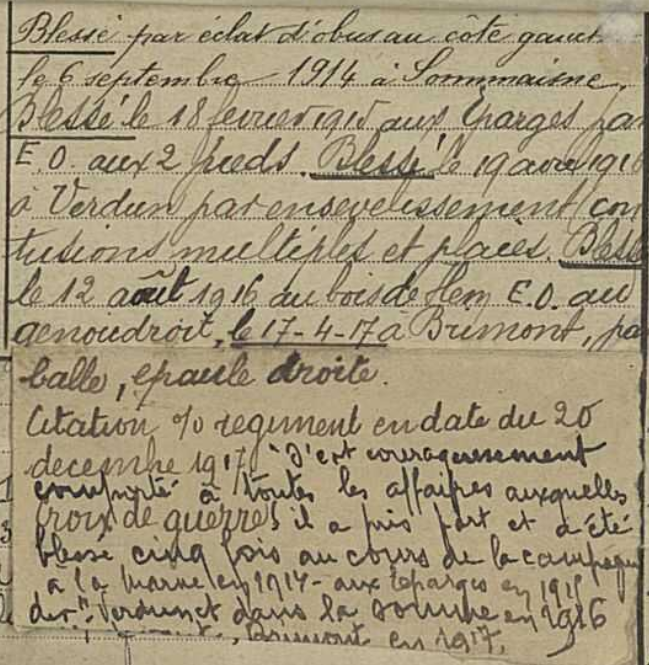 Blessé par éclat d'obus au côté gauc
le 6 septembre 1914 à Sommaisne,
Blessé le 18 fevrier 1915 aux Eparges pa
E.O. aux 2 pieds. Blessé le 19 avril 1916
à Verdun par ensevelissement (con
tusions multiples et plaies. Bless
le 12 août 1916 au bois de Hem E.O. au
genou droit, le 17-4-17 à Brimont, pa
balle, epaule droite.
Citation % regiment en date du 20
decembre 1917 "S'est courageusement
comporté à toutes les affaires auxquelles
Croix de guerre il a pris part et a été
blessé cinq fois au cours de la campagne
a la Marne en 1914 - aux Eparges en 1915
Verdun et dans la Somme en 1916
Brimont en 1917.